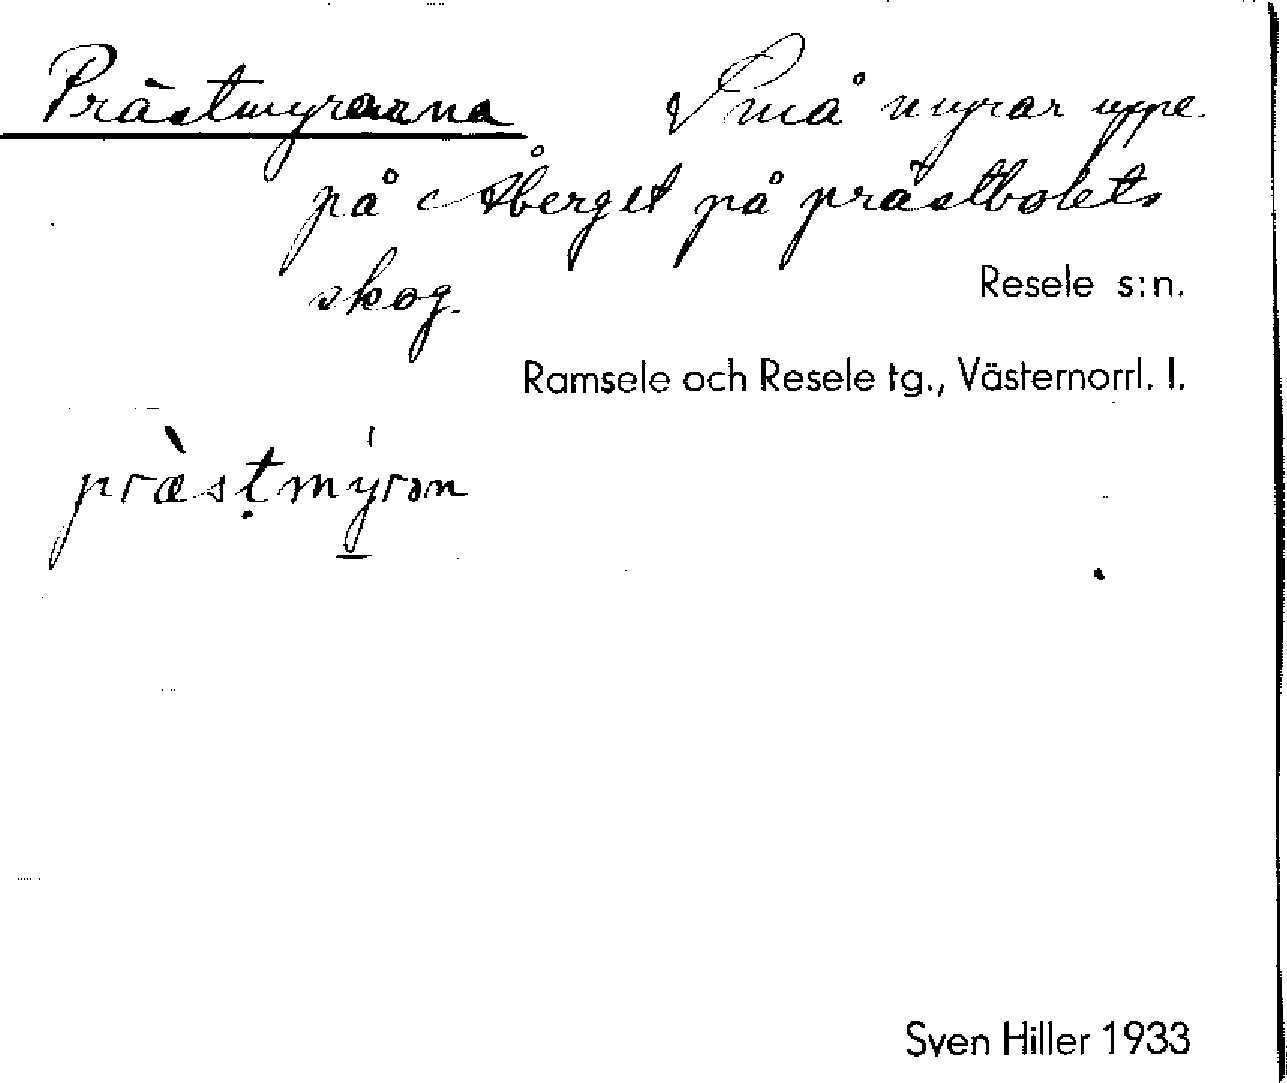 Prästmyrarna Små myrar uppe
på Åberget på prästbolets
skog.
Resele s:n.
Ramsele och Resele tg., Västernorrl. l.
prὰsṭmý̲rɷn
Sven Hiller 1933